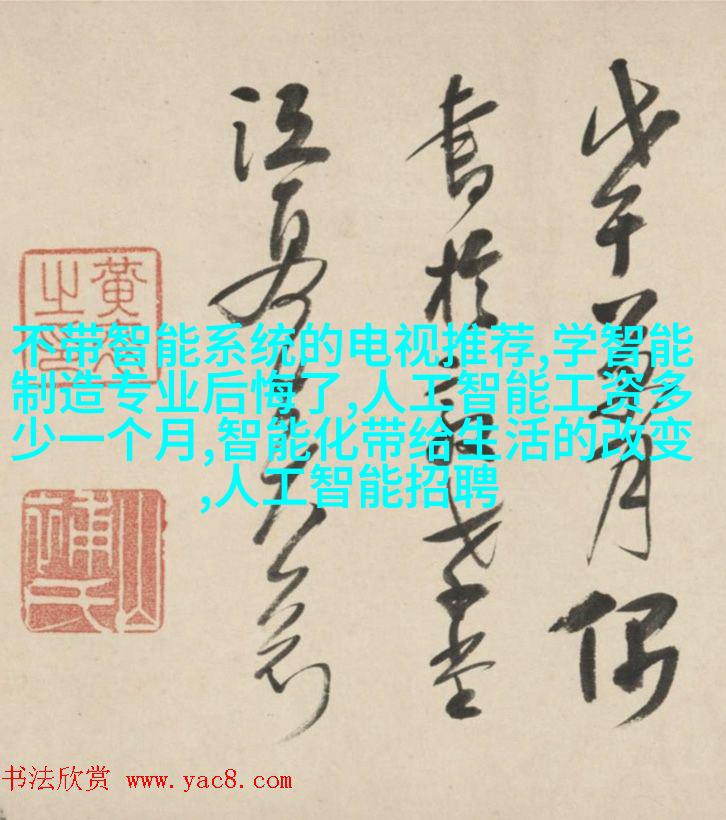 戊午月偶
書於堂
江夏
黃之
不带智能系统的电视推荐,学智能
制造专业后悔了,人工智能工资多
少一个月,智能化带给生活的改变
,人工智能招聘
书法欣赏 www.yac8.com